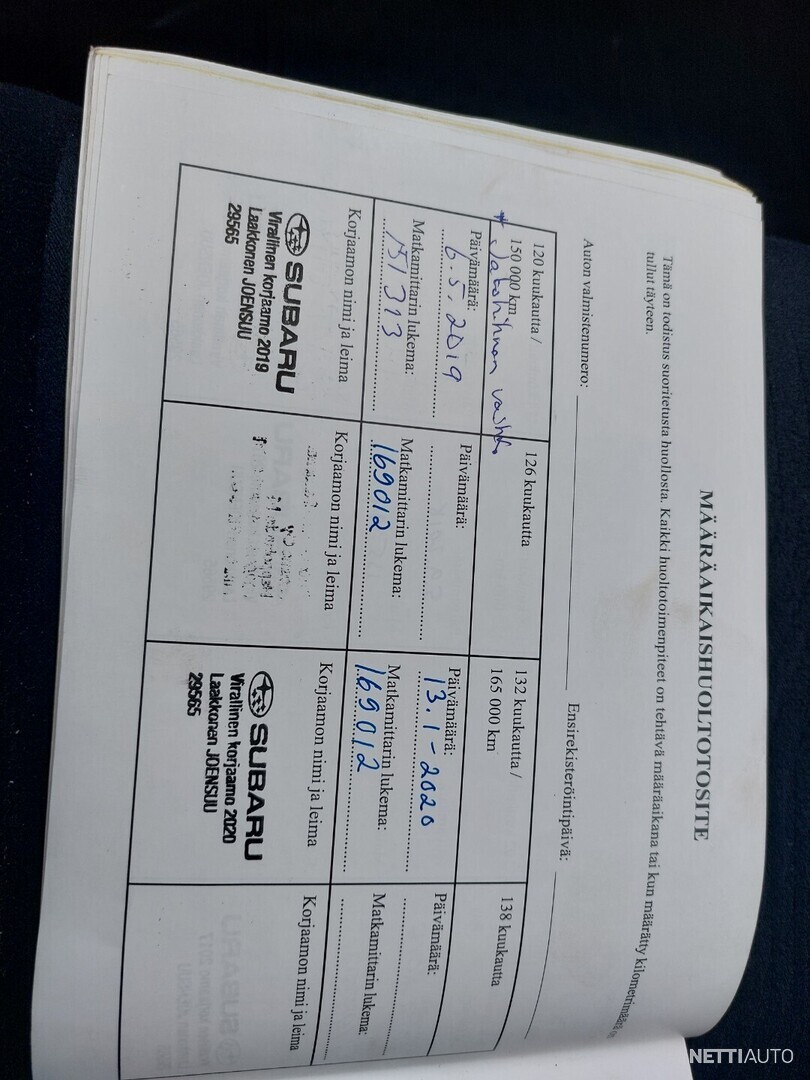 MÄÄRÄAIKAISHUOLTOTOSITE
Tämä on todistus suoritetusta huollosta. Kaikki huoltotoimenpiteet on tehtävä määräaikana tai kun määrätty kilometrimäärä on
tullut täyteen.
Auton valmistenumero:
Ensirekisteröintipäivä:
120 kuukautta /
150 000 km
* Jakohihnan vaihto
Päivämäärä:
6.5.2019
Matkamittarin lukema:
151313
Korjaamon nimi ja leima
SUBARU
Virallinen korjaamo 2019
Laakkonen JOENSUU
29565
126 kuukautta
Päivämäärä:
Matkamittarin lukema:
169012
Korjaamon nimi ja leima
132 kuukautta /
165 000 km
Päivämäärä:
13.1-2020
Matkamittarin lukema:
169012
Korjaamon nimi ja leima
SUBARU
Virallinen korjaamo 2020
Laakkonen JOENSUU
29565
138 kuukautta
Päivämäärä:
Matkamittarin lukema:
Korjaamon nimi ja leima
NETTIAUTO